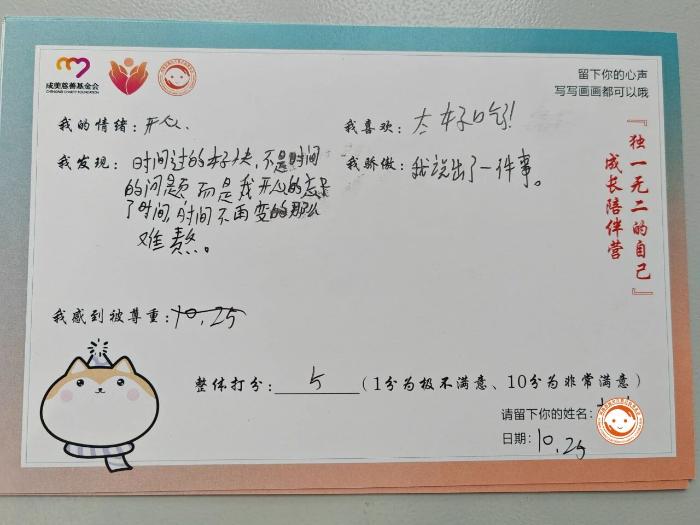 成美慈善基金会
CHENGMEI CHARITY FOUNDATION
留下你的心声
写写画画都可以哦
『独一无二的自己』
成长陪伴营
我的情绪：开心.
我喜欢：太好吃!
我发现：时间过的好快,不是时间
的问题,而是我开心的忘记
了时间,时间不再变的那么
难熬。
我骄傲：我说出了一件事。
我感到被尊重：10.25
整体打分：5（1分为极不满意、10分为非常满意）
请留下你的姓名：
日期：10.25